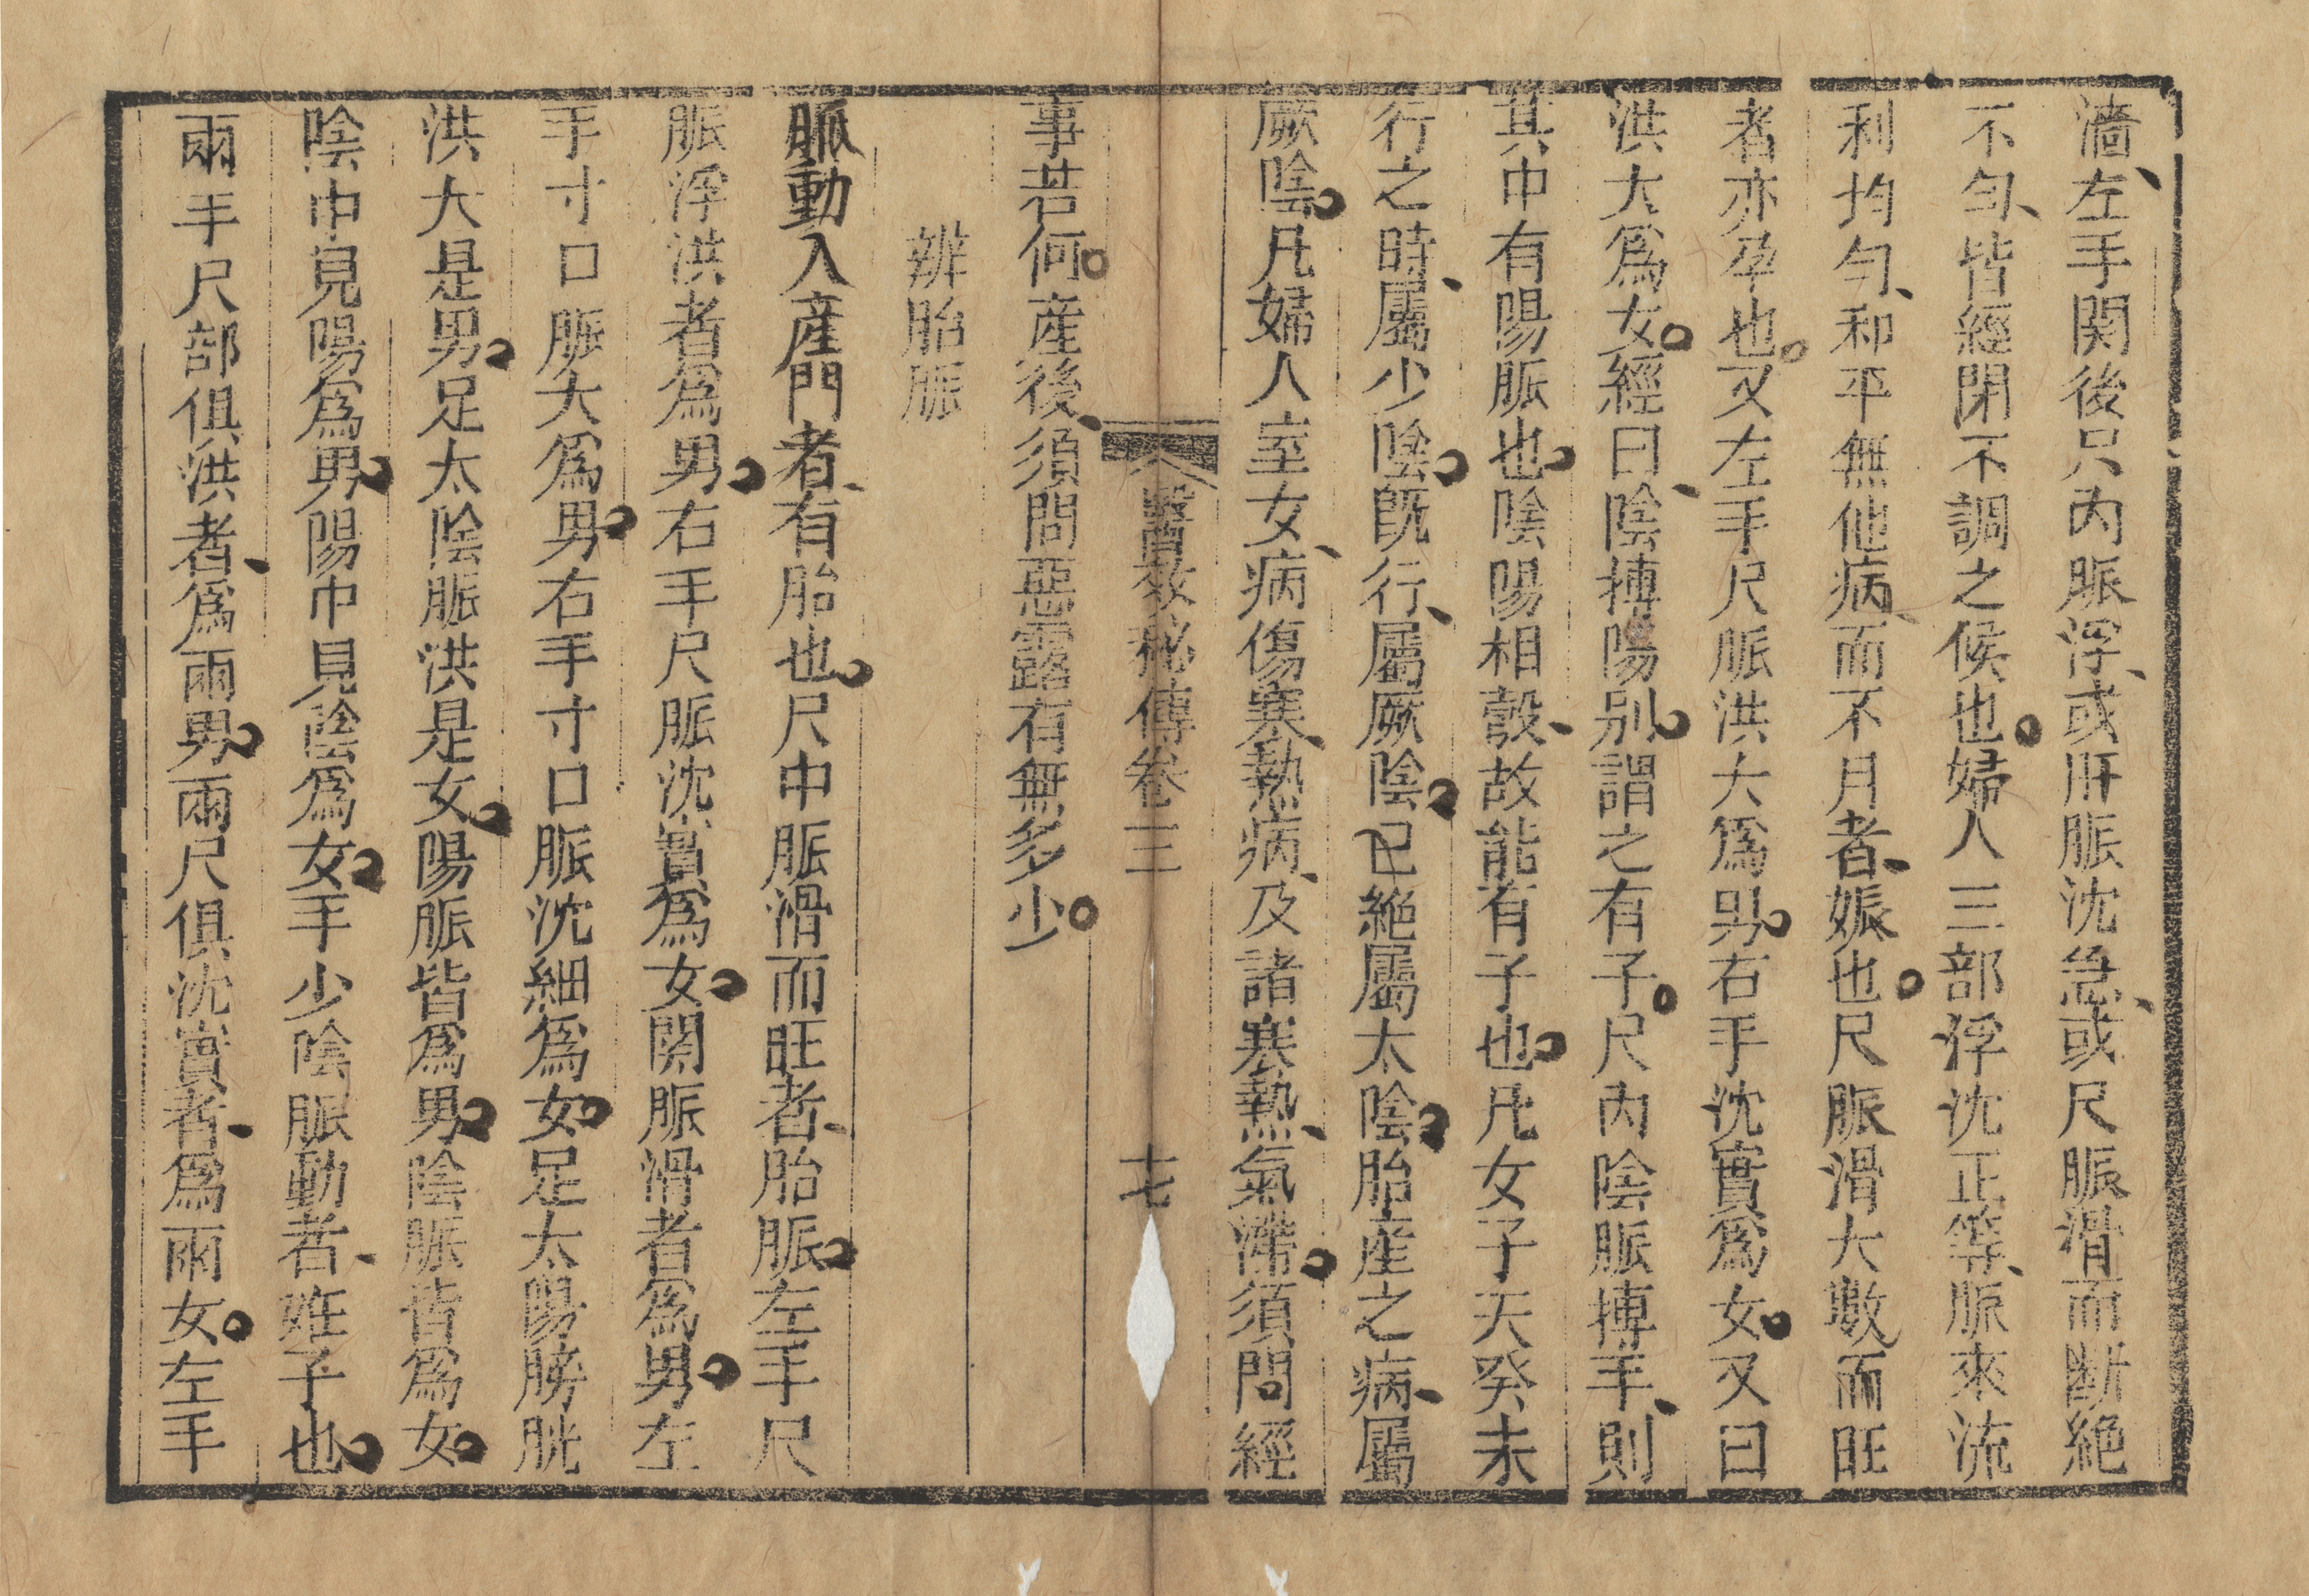 濇、左手関後只内脈浮、或肝脈沈急、或尺脈滑而断絶
不勻、皆經閉不調之候也。婦人三部浮沈正等、脈來流
利均勻、和平無他病、而不月者、娠也。尺脈滑大數而旺
者亦孕也。又左手尺脈洪大爲男。右手沈實爲女。又曰
洪大爲女。經曰、陰摶陽别。謂之有子。尺内陰脈摶手、則
其中有陽脈也。陰陽相㝅、故能有子也。凡女子天癸未
行之時、屬少陰。既行、屬厥陰。已絶屬太陰。胎產之病、屬
厥陰。凡婦人室女、病傷寒、熱病、及諸寒熱、氣滯。須問經
醫教秘傳卷三
十七
事若何。產後、須問惡露有無多少。
辨胎脈
脈動入產門者、有胎也。尺中脈滑而旺者、胎脈。左手尺
脈浮洪者爲男。右手尺脈沈實爲女。関脈滑者爲男。左
手寸口脈大爲男。右手寸口脈沈細爲女。足太陽膀胱
洪大是男。足太陰脈洪是女。陽脈皆爲男。陰脈皆爲女。
陰中見陽爲男。陽中見陰爲女。手少陰脈動者、姙子也。
兩手尺部俱洪者、爲兩男。兩尺俱沈實者、爲兩女。左手